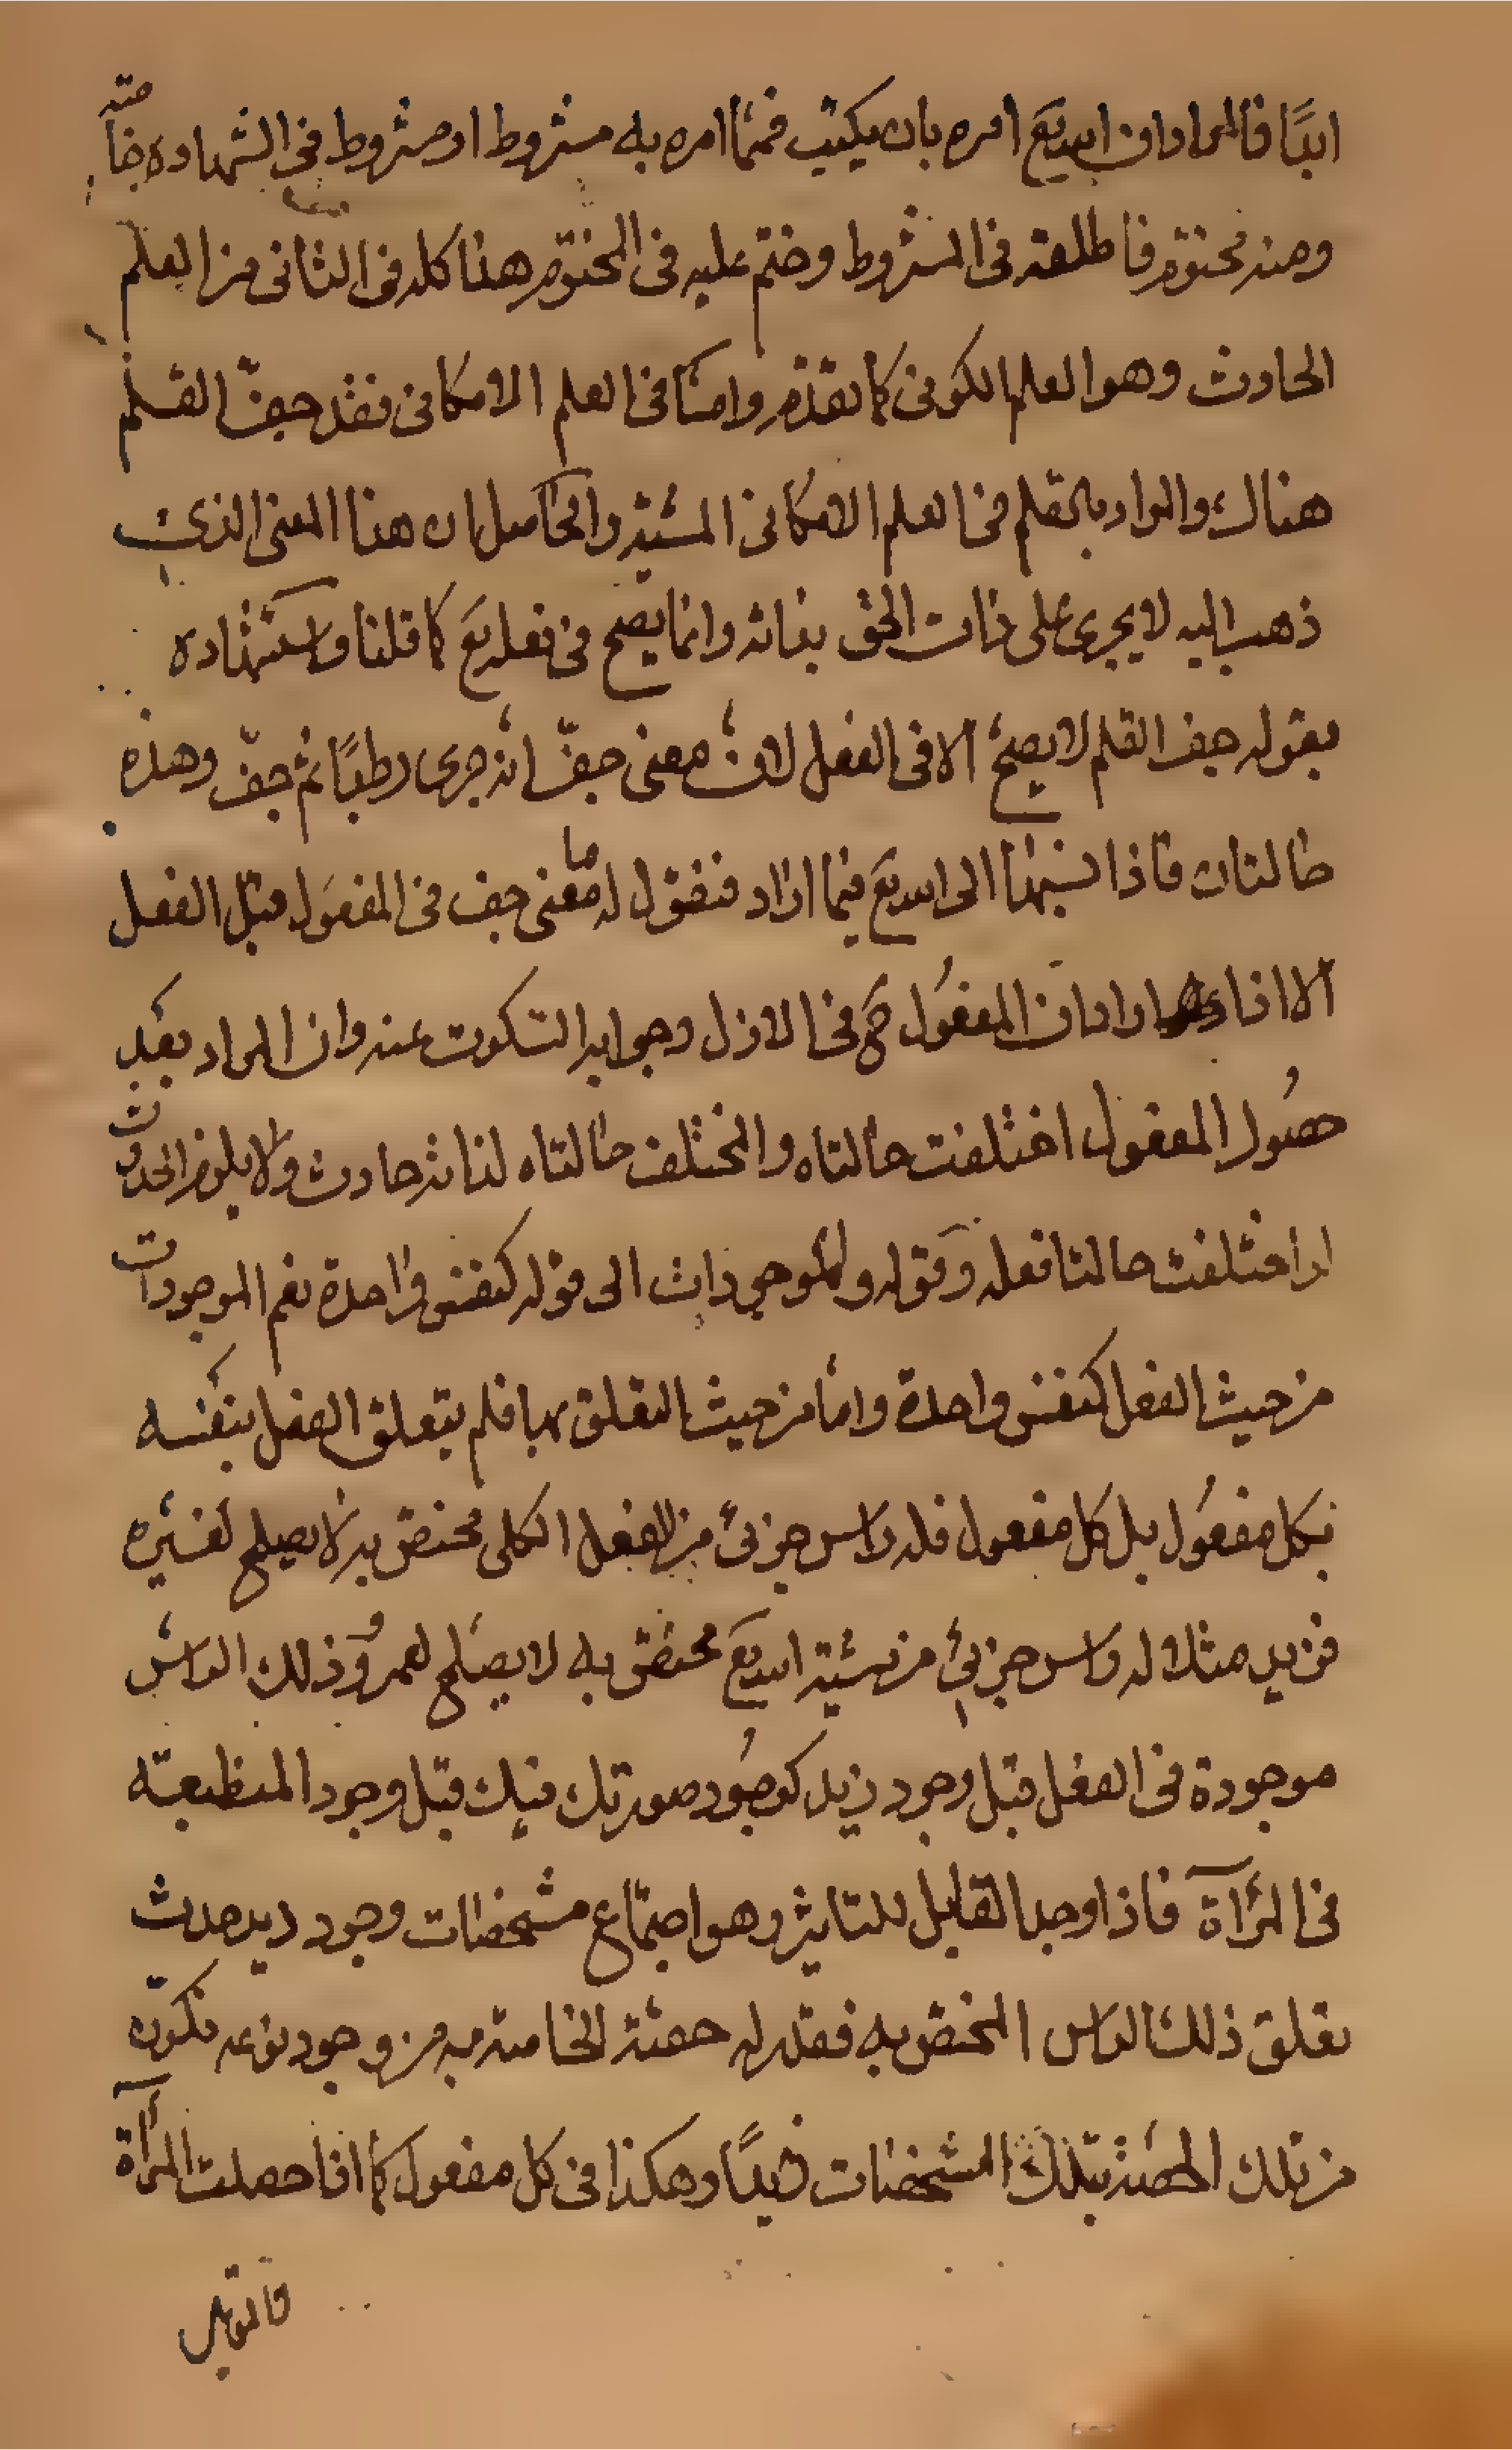 ابدًا فالمراد ان الله تع امره بان يكتب فمما امره به مشروط او مشروط في الشهادة خاصّة
ومنه محتوم فاطلقه في المشروط وختم عليه في المحتوم هذا كله في الثاني من العلم
الحادث وهو العلم الكوني كما تقدّم وامّا في العلم الامكاني فقد جفّ القلم
هناك والمراد بالقلم في العلم الامكاني المشيّة والحاصل ان هذا المعنى الذي
ذهب اليه لا يجري على ذات الحق بذاته وانما يصح في فعله تع كما قلنا واستشهاده
بقوله جف القلم لا يصحّ الا في الفعل لانّ معنى جفّ انّه جرى رطبًا ثم جفّ وهذه
حالتان فاذا نسبتهما الى الله تع فيما اراد فنقول له ما معنى جف في المفعول قبل الفعل
الا اذا اراد ان المفعول في الازل وجوابه السكوت عنه وان المراد بعد
حصول المفعول اختلفت حالتاه والمختلف حالتاه لذاته حادث ولا يلزم الحدوث
اذا اختلفت حالتا فعله وقوله والموجودات الى قوله كنفس واحدة نعم الموجودات
من حيث الفعل كنفس واحدة وامّا من حيث التعلق بها فلم يتعلق الفعل بنفسه
بكل مفعول بل كل مفعول فله راس جزئي من الفعل الكلي مختصّ به لا يصلح لغيره
فزيد مثلا له راس جزئي من مشيّة الله تع مختصّ به لا يصلح لعمرو وذلك الراس
موجودة في الفعل قبل وجود زيد كوجود صورتك فيك قبل وجود المنطبعة
في المرآة فاذا وجد القابل للتاثير وهو اجتماع مشخصات وجود زيد حدث
تعلق ذلك الراس المختص به فقدر له حصّة الخاصة به من وجود نوعه فكون
من تلك الحصّة بتلك المشخصات زيدًا وهكذا في كل مفعول كما اذا حصلت المرآة